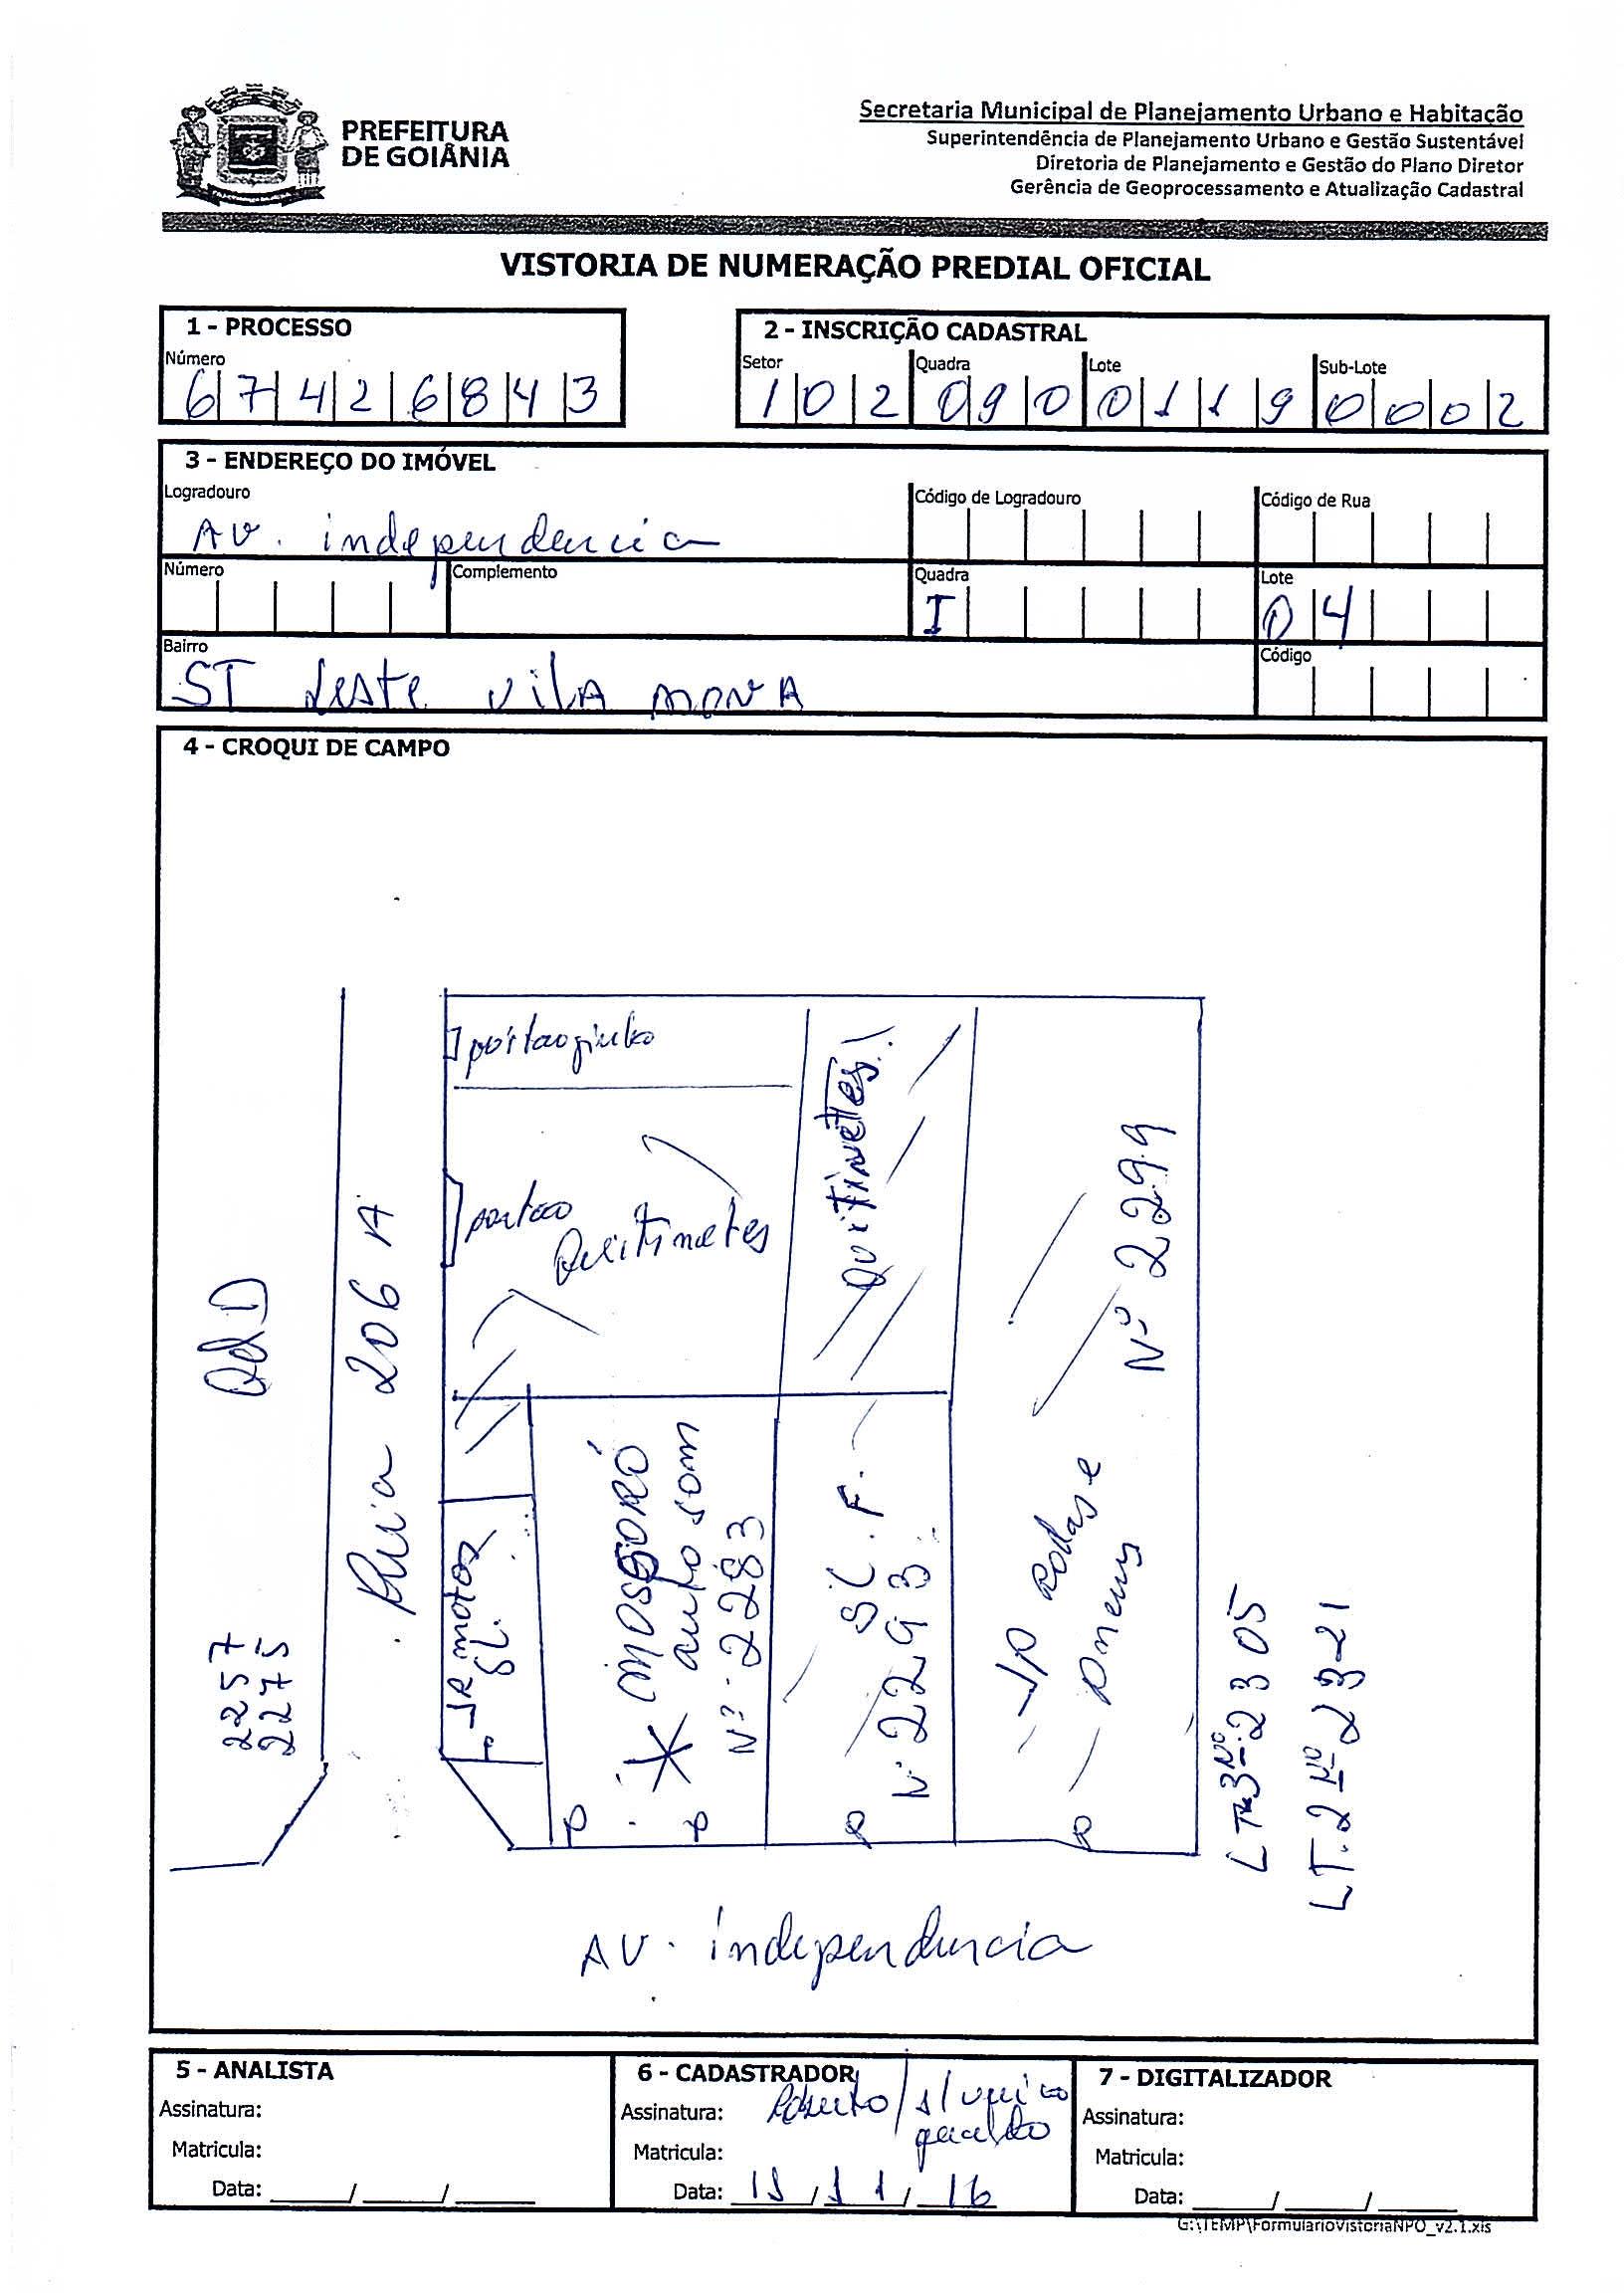 PREFEITURA
DE GOIÂNIA
Secretaria Municipal de Planejamento Urbano e Habitação
Superintendência de Planejamento Urbano e Gestão Sustentável
Diretoria de Planejamento e Gestão do Plano Diretor
Gerência de Geoprocessamento e Atualização Cadastral
VISTORIA DE NUMERAÇÃO PREDIAL OFICIAL
1 - PROCESSO
Número
67426843
2 - INSCRIÇÃO CADASTRAL
Setor Quadra Lote Sub-Lote
102 090 0119 0002
3 - ENDEREÇO DO IMÓVEL
Logradouro Código de Logradouro Código de Rua
AV. independencia
Número Complemento Quadra Lote
I 04
Bairro Código
ST Leste vilA novA
4 - CROQUI DE CAMPO
portaozinho
portao
Quitinetes
QUITINETES
Qd D
Rua 206 A
2257
2275
JR motos
SL.
MOSSORÓ
auto som
Nº 2283
SL. F.
N. 2293
JP Rodas e
Pneus
Nº 2299
LT 3 Nº 2305
LT. 2 Nº 2321
AV. independencia
5 - ANALISTA
Assinatura:
Matricula:
Data: ____/____/____
6 - CADASTRADOR
Assinatura: Roberto
Matricula:
Data: 11/11/16
7 - DIGITALIZADOR
Assinatura:
Matricula:
Data: ____/____/____
G:\TEMP\FormularioVistoriaNPO_v2.1.xls